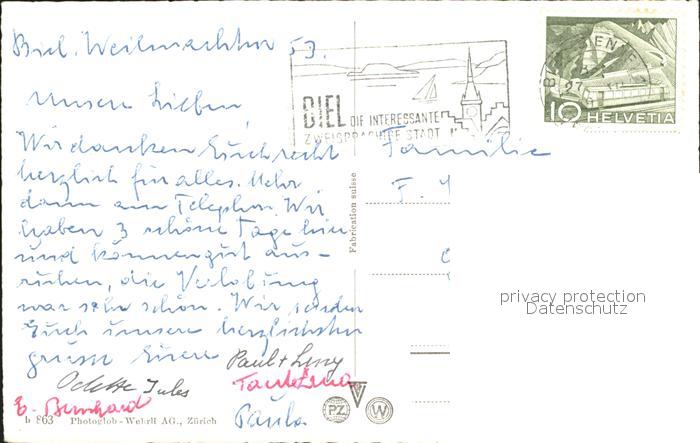 Biel, Weihnachten 53.
Unsere Lieben,
Wir danken Euch recht
herzlich für alles. Mehr
dann am Telephon. Wir
haben 3 schöne Tage hier
und können gut aus-
ruhen, die Verlobung
war sehr schön. Wir senden
Euch unsere herzlichsten
grüsse Eure Paul + Leny
Odette Jules
Tante Lina
E. Bernhard
Paula
b 863 Photoglob-Wehrli AG., Zürich
Fabrication suisse
PZ W
BIEL DIE INTERESSANTE
ZWEISPRACHIGE STADT
10 HELVETIA
Familie
F.
privacy protection
Datenschutz